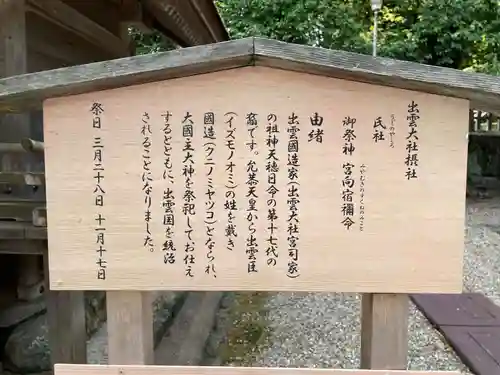 出雲大社摂社
氏社
うじのやしろ
御祭神 宮向宿彌命
みやむきのすくねのみこと
由緒
出雲國造家(出雲大社宮司家)
の祖神天穂日命の第十七代の
裔です。允恭天皇から出雲臣
(イズモノオミ)の姓を戴き
國造(クニノミヤツコ)となられ、
大國主大神を祭祀してお仕え
するとともに、出雲国を統治
されることになりました。
祭日 三月二十八日 十一月十七日